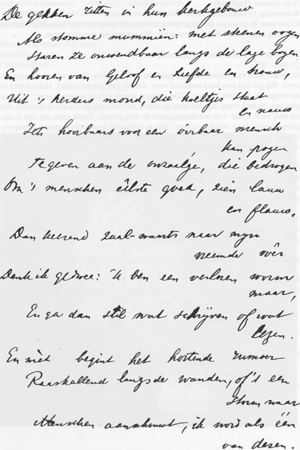 De gekken zitten in hun kerkgebouw
Als stomme mummiën: met steenen oogen
Staren ze onwendbaar langs de lage bogen
En hooren van Geloof en Liefde en trouw,
Uit 's herders mond, die koeltjes staat
en nauw
Iets hoorbaars voor een mensch
kan pogen
Te geven aan de onzaal'ge, die bedrogen
Om 's menschen éélste goed, zien lauw
en flauw,
Dan keerend zaal-waarts naar mijn
Denk ik gedwee: 'k ben een verloren worm
maar,
En ga dan stil wat schrijven of wat
lezen.
En niet begint het hortende rumoer
Raaskallend langs de wanden, of 's een
Storm naar
Menschen aankomt, ik word als één
van dezen.